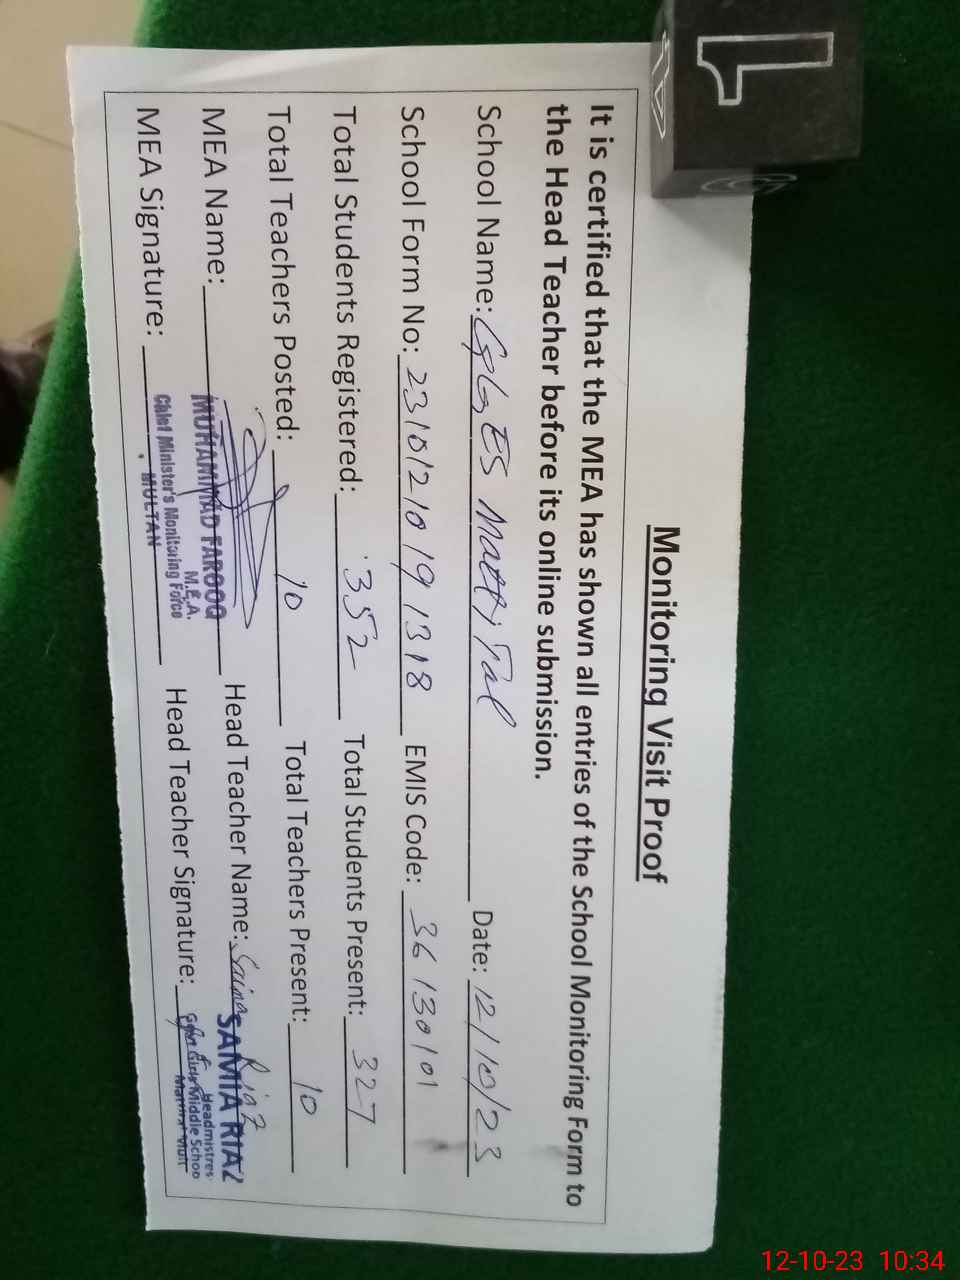 Monitoring Visit Proof
It is certified that the MEA has shown all entries of the School Monitoring Form to
the Head Teacher before its online submission.
School Name: GGES Matty Tal Date: 12/10/23
School Form No: 23101210191318 EMIS Code: 36130101
Total Students Registered: 352 Total Students Present: 327
Total Teachers Posted: 10 Total Teachers Present: 10
MEA Name: MUHAMMAD FAROOQ Head Teacher Name: SAMIA RIAZ
M.E.A.
Chief Minister's Monitoring Force
MULTAN
MEA Signature: Head Teacher Signature:
Headmistres
Girls Middle Schoo
12-10-23 10:34